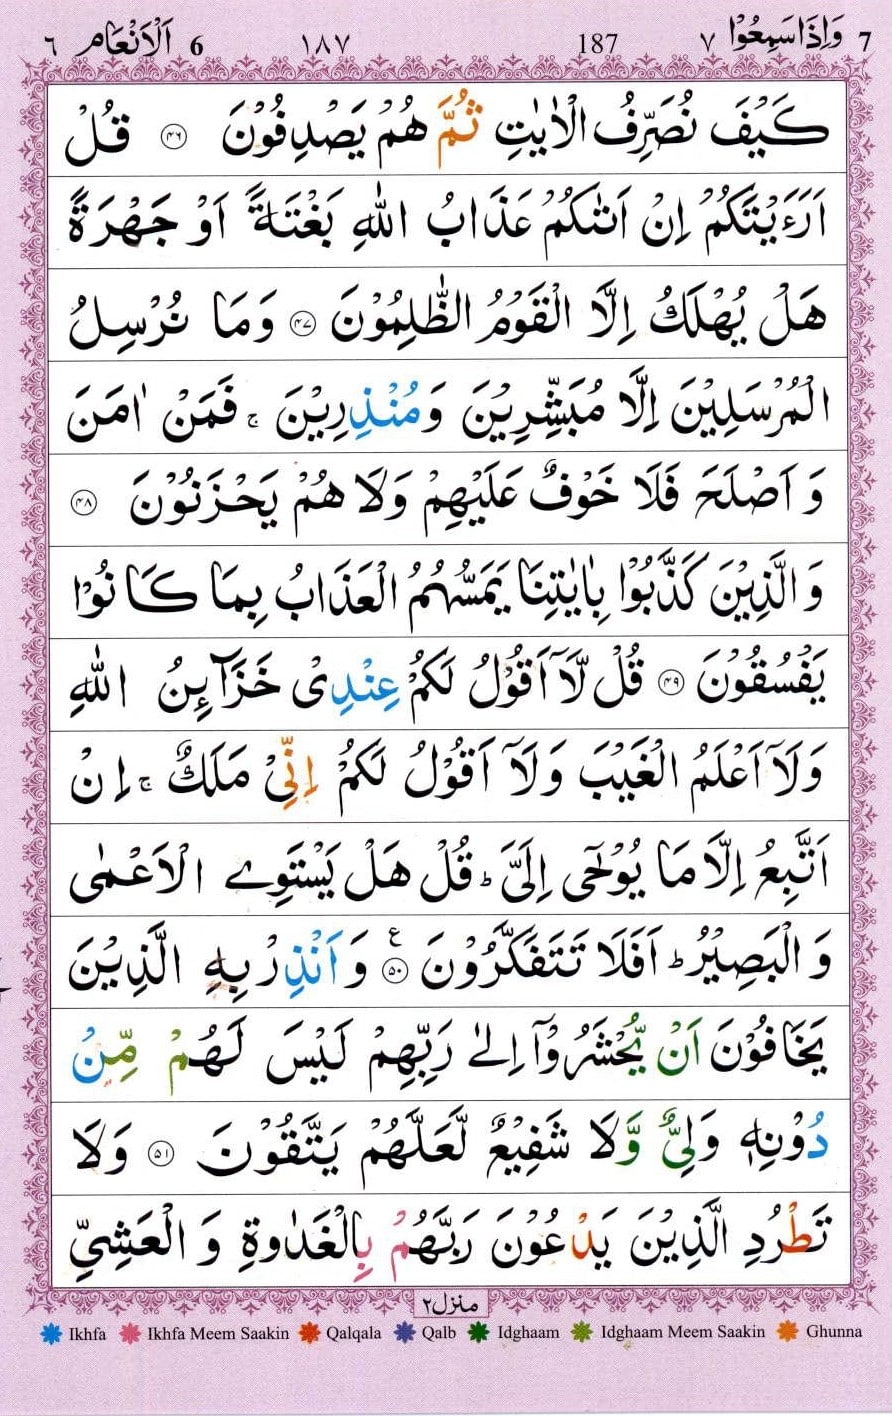 7 وَاِذَا سَمِعُوْا ٧ 187 ١٨٧ 6 اَلْاَنْعَام ٦
كَيْفَ نُصَرِّفُ الْاٰيٰتِ ثُمَّ هُمْ يَصْدِفُوْنَ ﴿۴۶﴾ قُلْ
اَرَءَيْتَكُمْ اِنْ اَتٰىكُمْ عَذَابُ اللّٰهِ بَغْتَةً اَوْ جَهْرَةً
هَلْ يُهْلَكُ اِلَّا الْقَوْمُ الظّٰلِمُوْنَ ﴿۴۷﴾ وَمَا نُرْسِلُ
الْمُرْسَلِيْنَ اِلَّا مُبَشِّرِيْنَ وَمُنْذِرِيْنَ ۚ فَمَنْ اٰمَنَ
وَاَصْلَحَ فَلَا خَوْفٌ عَلَيْهِمْ وَلَا هُمْ يَحْزَنُوْنَ ﴿۴۸﴾
وَالَّذِيْنَ كَذَّبُوْا بِاٰيٰتِنَا يَمَسُّهُمُ الْعَذَابُ بِمَا كَانُوْا
يَفْسُقُوْنَ ﴿۴۹﴾ قُلْ لَّاۤ اَقُوْلُ لَكُمْ عِنْدِىْ خَزَآئِنُ اللّٰهِ
وَلَاۤ اَعْلَمُ الْغَيْبَ وَلَاۤ اَقُوْلُ لَكُمْ اِنِّىْ مَلَكٌ ۚ اِنْ
اَتَّبِعُ اِلَّا مَا يُوْحٰٓى اِلَىَّ ؕ قُلْ هَلْ يَسْتَوِے الْاَعْمٰى
وَالْبَصِيْرُ ؕ اَفَلَا تَتَفَكَّرُوْنَ ﴿۵۰﴾ ع وَاَنْذِرْ بِهِ الَّذِيْنَ
يَخَافُوْنَ اَنْ يُّحْشَرُوْۤا اِلٰى رَبِّهِمْ لَيْسَ لَهُمْ مِّنْ
دُوْنِهٖ وَلِىٌّ وَّلَا شَفِيْعٌ لَّعَلَّهُمْ يَتَّقُوْنَ ﴿۵۱﴾ وَلَا
تَطْرُدِ الَّذِيْنَ يَدْعُوْنَ رَبَّهُمْ بِالْغَدٰوةِ وَالْعَشِىِّ
منزل٢
Ikhfa Ikhfa Meem Saakin Qalqala Qalb Idghaam Idghaam Meem Saakin Ghunna